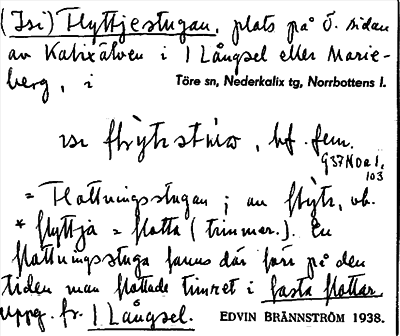 (Isi) Flyttjestugan, plats på Ö. sidan
av Kalixälven i 1 Långsel eller Marie-
berg, i Töre sn, Nederkalix tg, Norrbottens l.
bf. fem.
103
= Flottningsstugan; av vb.
* flyttja = flotta (timmer.). En
flottningsstuga fanns där förr på den
tiden man flottade timret i fasta flottar
uppg. fr. 1 Långsel. EDVIN BRÄNNSTRÖM 1938.